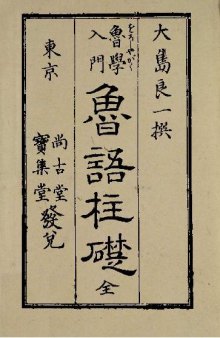 大島良一撰
魯學入門
をろしやがく
魯語柱礎 全
東京
尚古堂
寶集堂
發兌